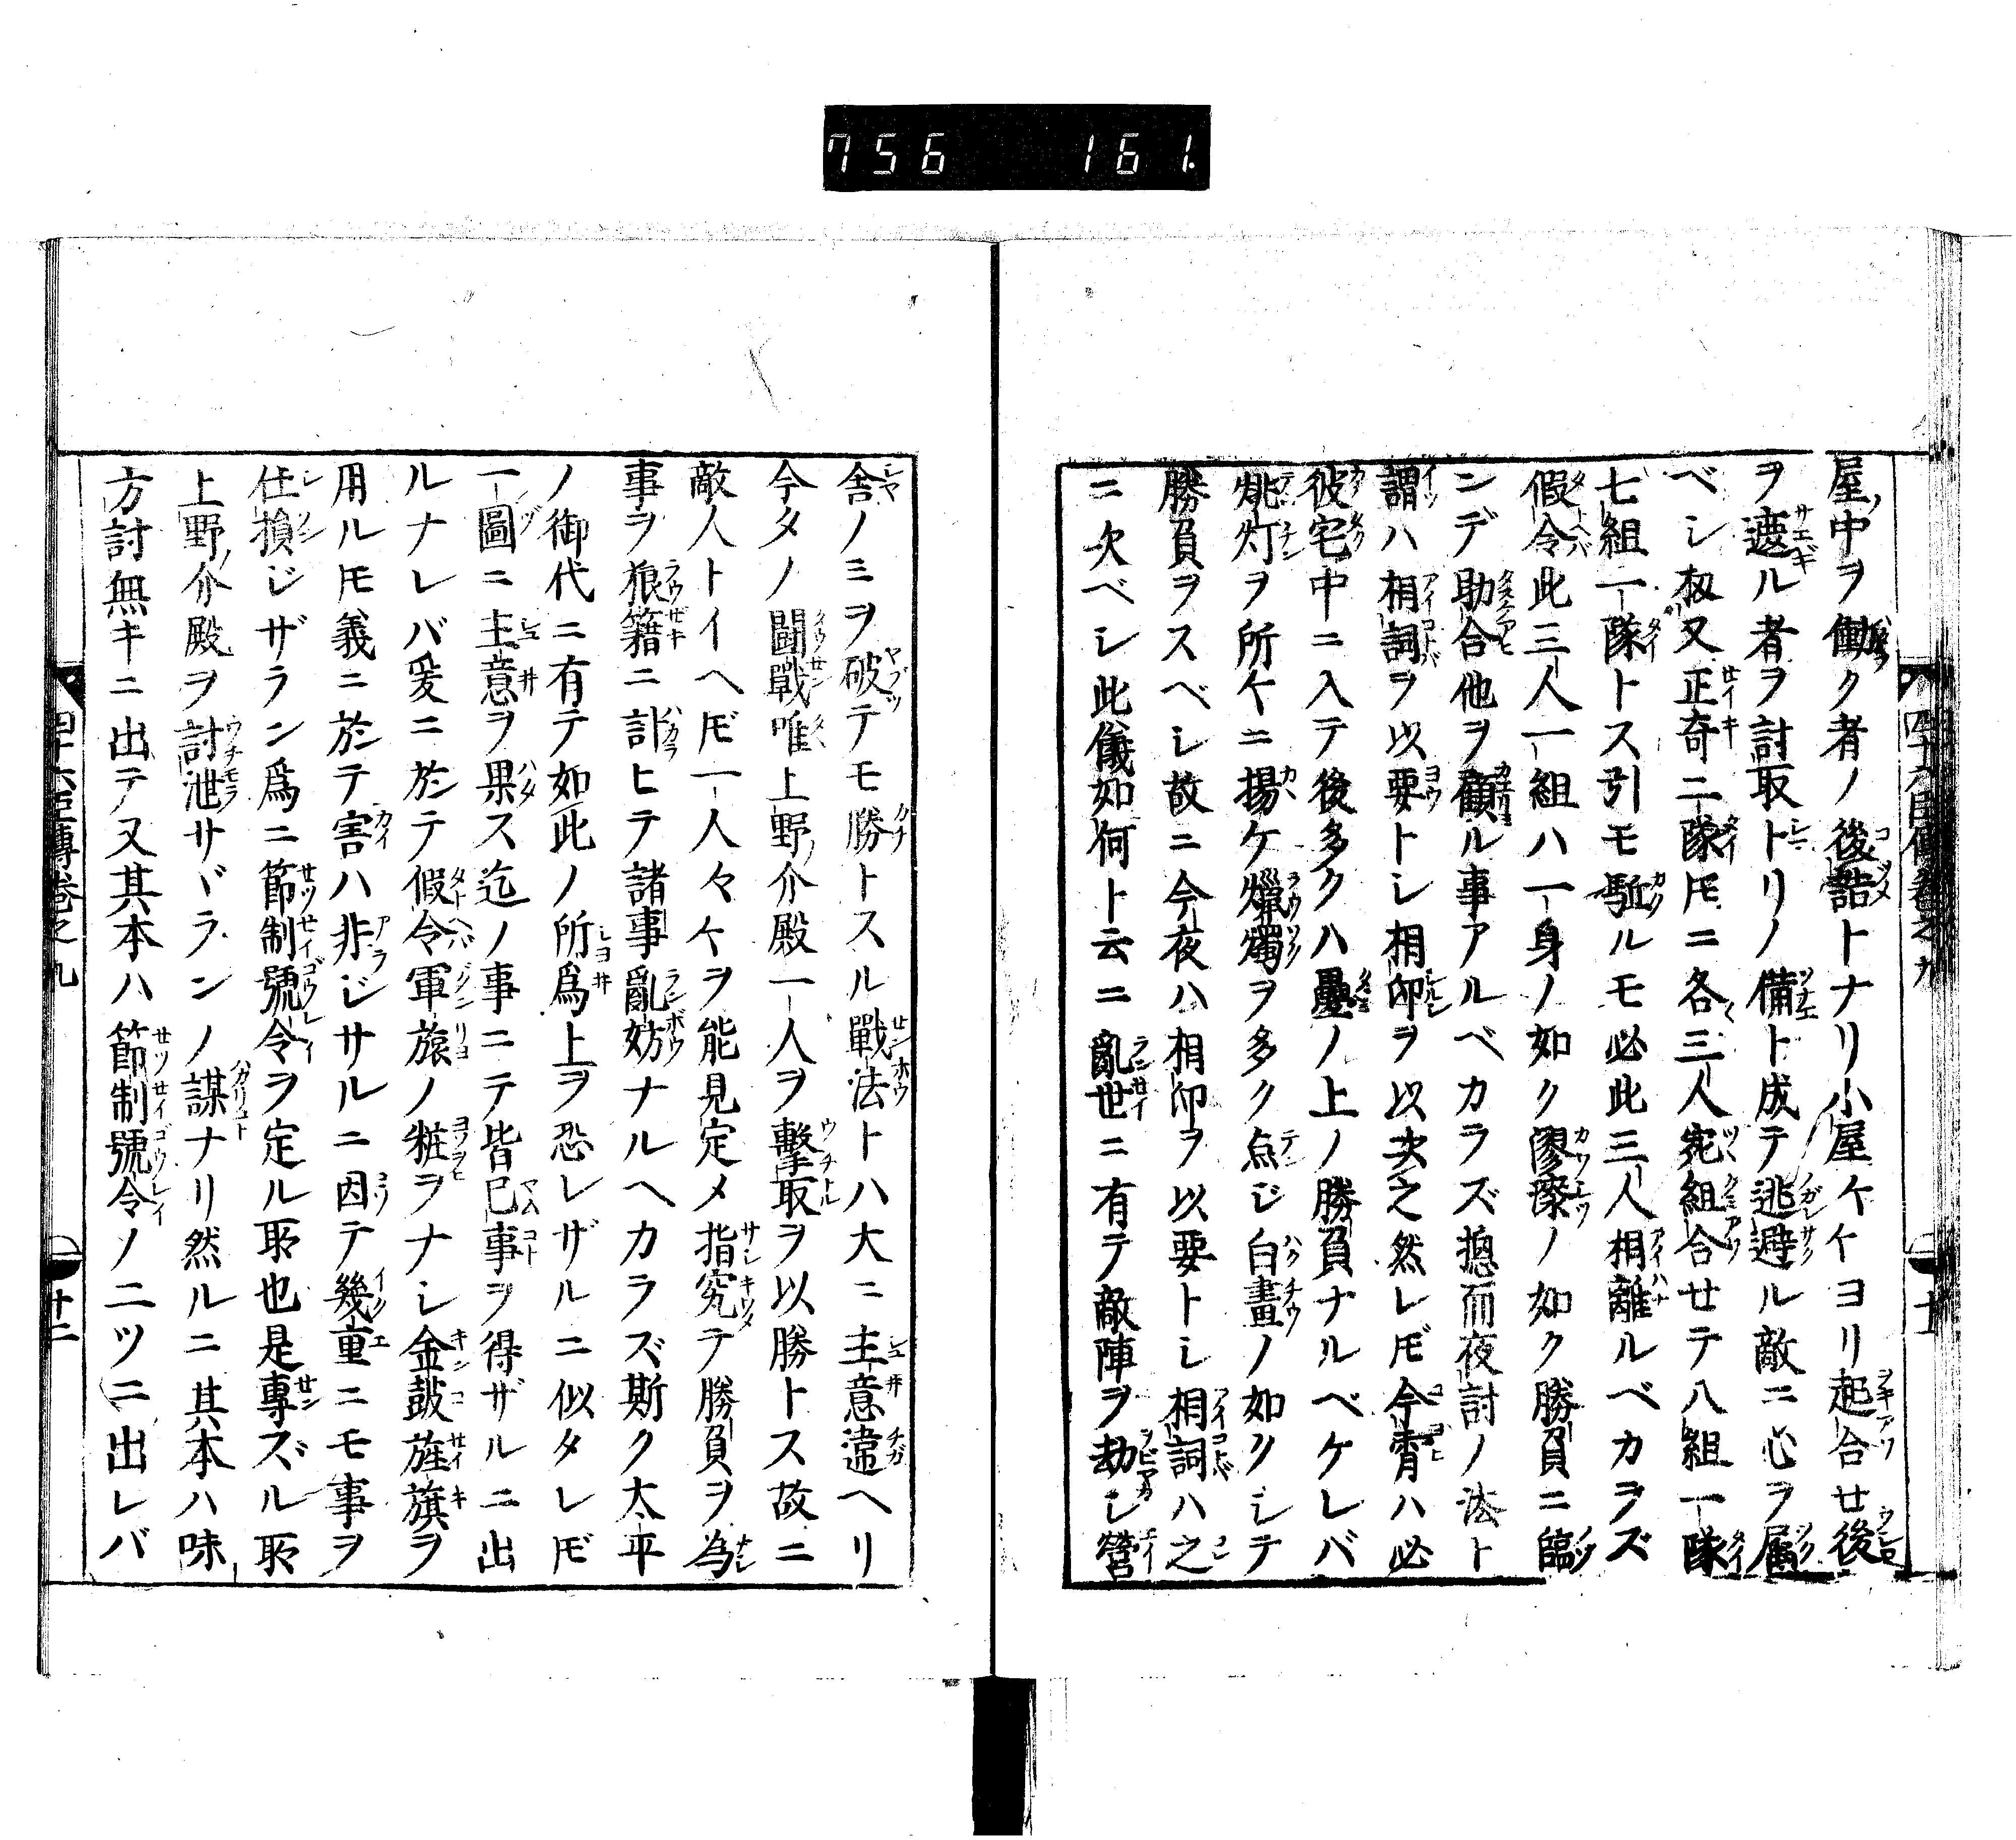 756 161.
四十六臣傳巻之九
屋ノ中ヲ働ク者ノ後詰トナリ小屋々々ヨリ起合セ後
ヲ遮ル者ヲ討取トリノ備ト成テ逃避ル敵ニ心ヲ属
ベシ扨又正奇二隊𪜈ニ各三人宛組合セテ八組一隊
七組一隊トス引モ駈ルモ必此三人相離ルベカラズ
假令此三人一組ハ一身ノ如ク膠漆ノ如ク勝負ニ臨
ンデ助合他ヲ顧ル事アルベカラズ摠而夜討ノ法ト
謂ハ相詞ヲ以要トシ相印ヲ以次之然レ𪜈今宵ハ必
彼宅中ニ入テ後多クハ疊ノ上ノ勝負ナルベケレバ
挑灯ヲ所々ニ揚ケ蠟燭ヲ多ク点ジ白晝ノ如クシテ
勝負ヲスベシ故ニ今夜ハ相印ヲ以要トシ相詞ハ之
ニ次ベシ此儀如何ト云ニ亂世ニ有テ敵陣ヲ劫シ營
舎ノミヲ破テモ勝トスル戰法トハ大ニ主意違ヘリ
今夕ノ鬪戰唯上野ノ介殿一人ヲ擊取ヲ以勝トス故ニ
敵人トイヘ𪜈一人々々ヲ能見定メ指究テ勝負ヲ為
事ヲ狼籍ニ計ヒテ諸事亂妨ナルヘカラズ斯ク太平
ノ御代ニ有テ如此ノ所爲上ヲ恐レザルニ似タレ𪜈
一圖ニ主意ヲ果ス迄ノ事ニテ皆已事ヲ得ザルニ出
ルナレバ爰ニ於テ假令軍旅ノ粧ヲナシ金鼓旌旗ヲ
用ル𪜈義ニ於テ害ハ非ジサルニ因テ幾重ニモ事ヲ
仕損ジザラン爲ニ節制號令ヲ定ル所也是專ズル所
上野ノ介殿ヲ討泄サヾランノ謀ナリ然ルニ其本ハ味
方討無キニ出テ又其本ハ節制號令ノ二ツニ出レバ
四十六臣傳巻之九
十二